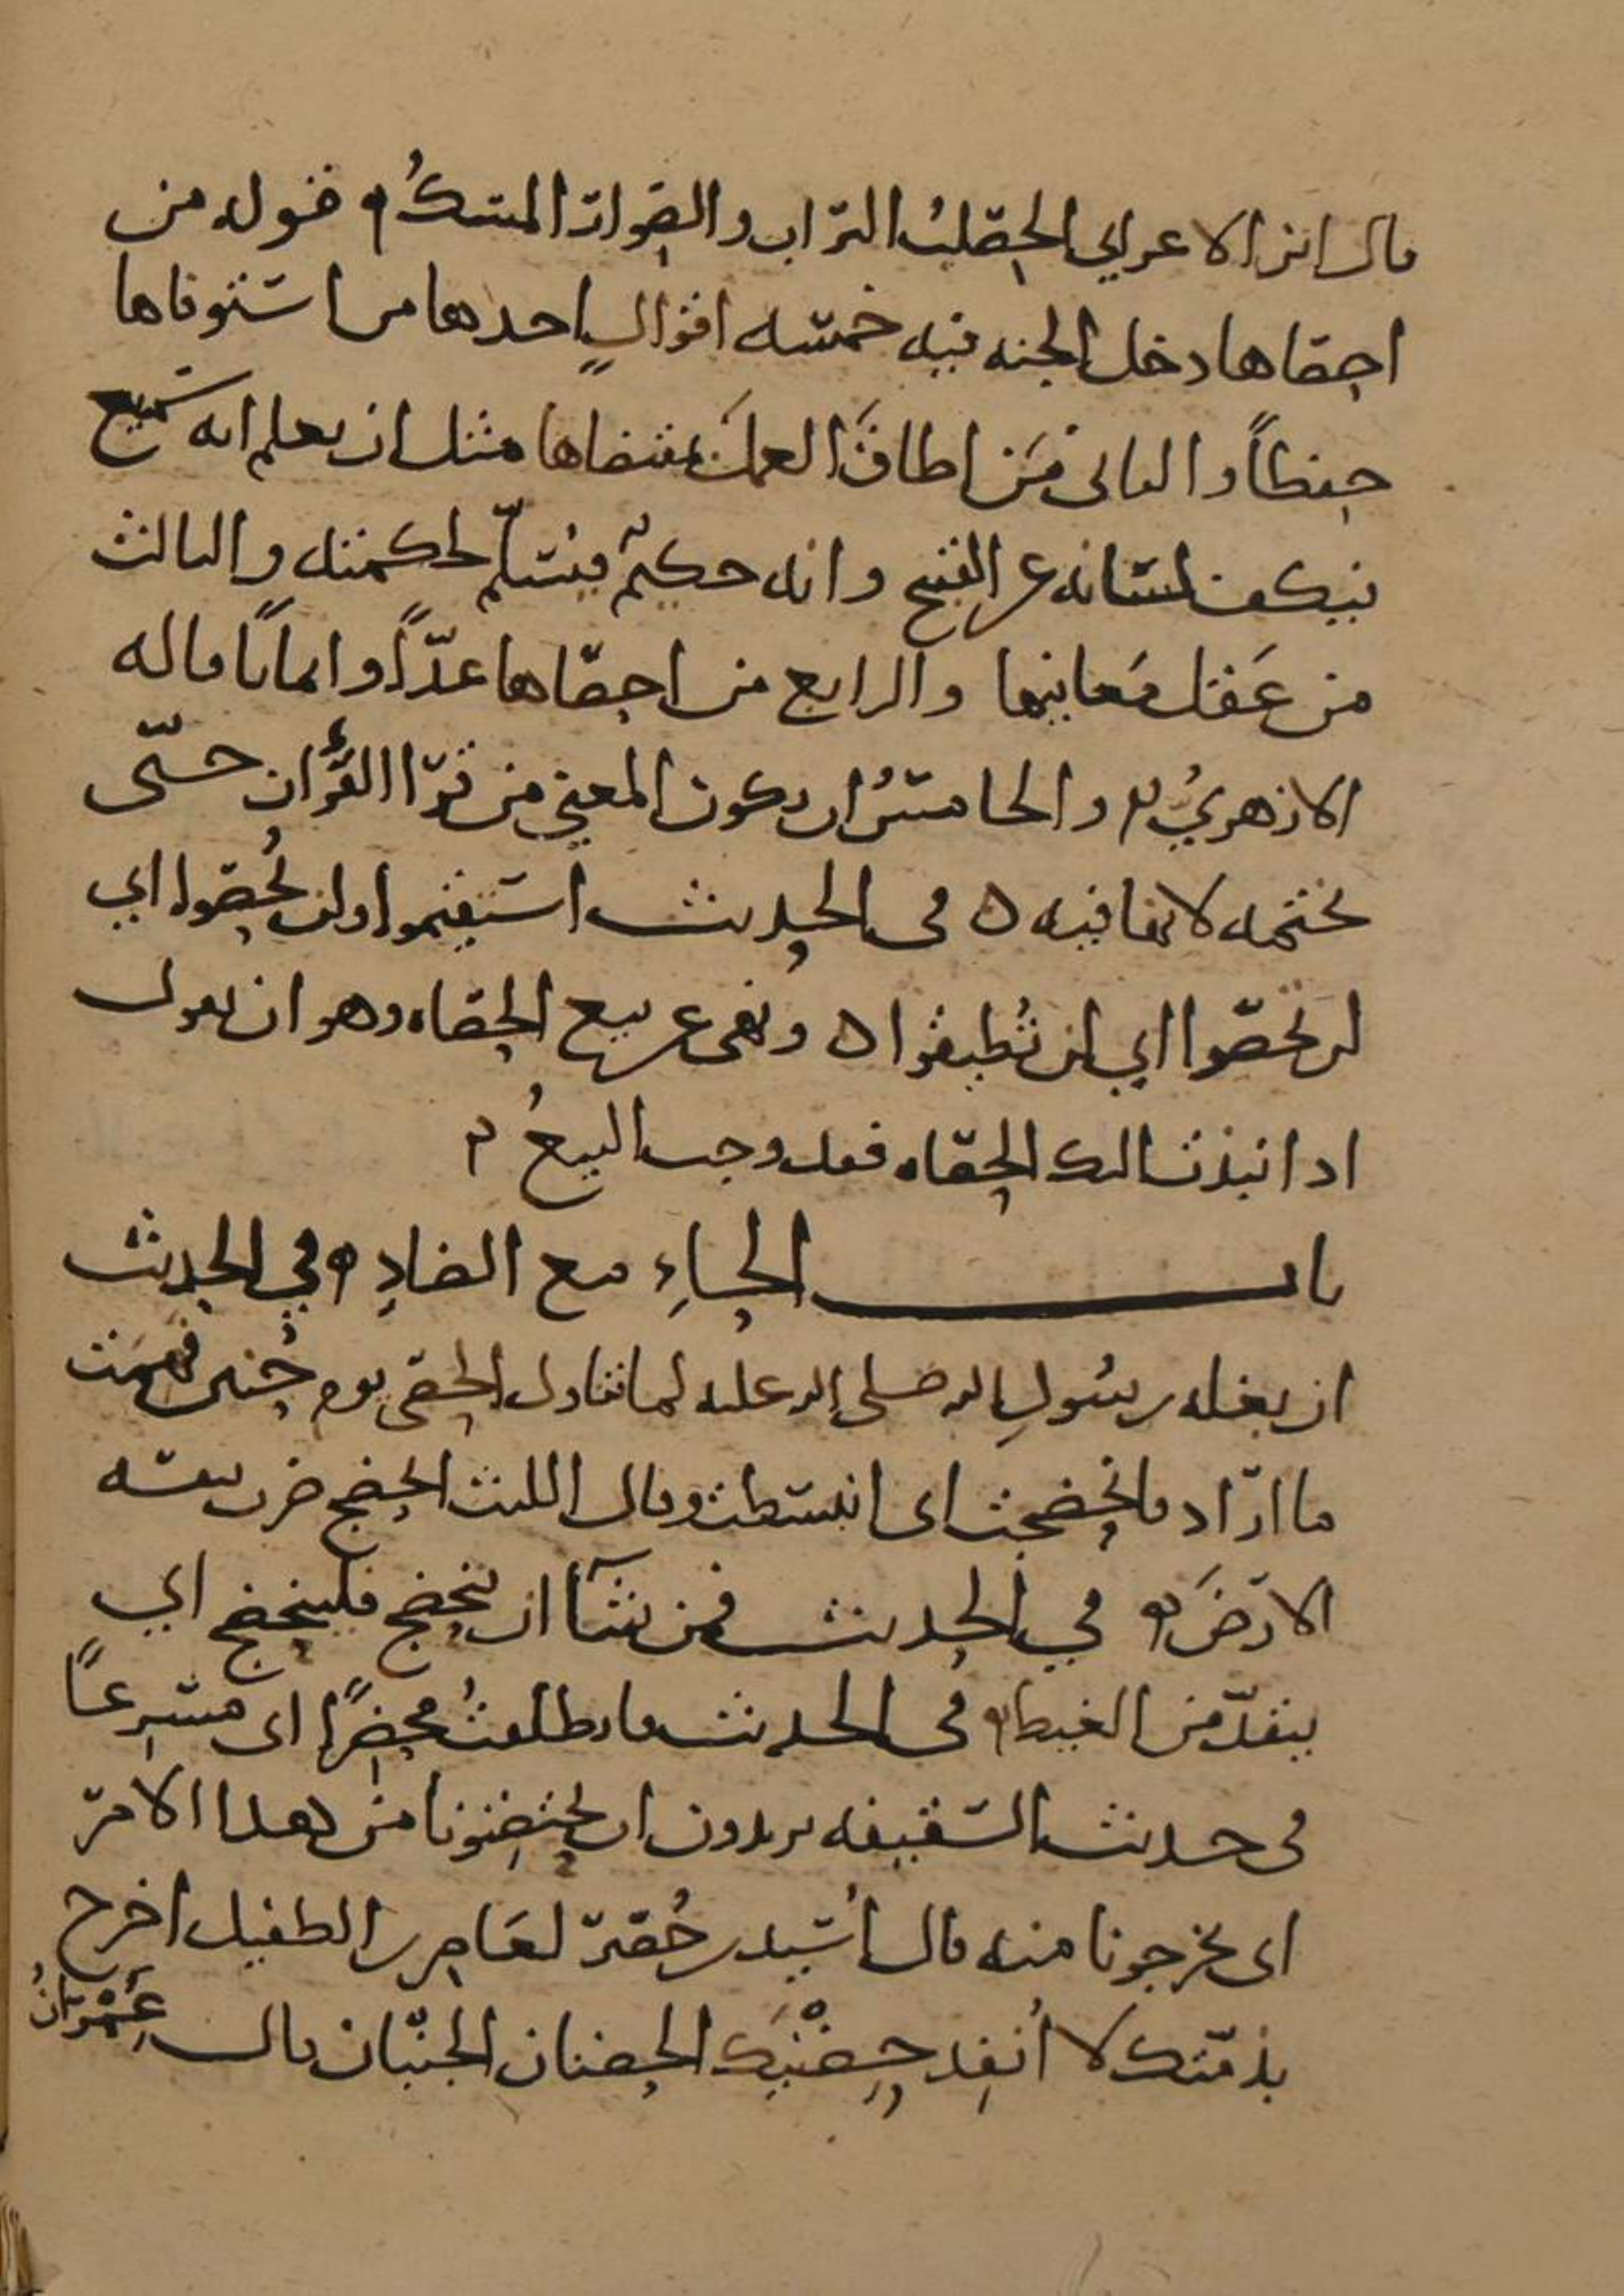 قال ابن الاعرابي الحصلبُ التراب والصوار المسكُ قوله من
احصاها دخل الجنه فيه خمسه اقوالٍ احدها من استوفاها
حفظاً والثاني مَن اطاقَ العملَ بمقتضاها مثل ان يعلم انه سميع
فيكف لسانه عن القبيح وانه حكيمٌ فيُسلّم لحكمته والثالث
من عَقل مَعانيها والرابع من احصاها عدّاً وايماناً قاله
الازهريُ والخامسُ ان يكون المعني من قرا القرأن حتّى
يختمه لانها فيه ه فى الحديث استقيموا ولن تُحصوا اي
لن تحصوا اي لن تُطيقوا ه ونهى عن بيع الحصاه وهو ان يقول
اذا نبذت اليك الحصاه فقد وجب البيعُ
باب الحاءِ مع الضادِ في الحديث
ان بغله رسُولِ الله صلى الله عليه لما تناول الحصى يوم حُنين فهمت
ما اراد فانحضجت اى انبسطت وقال الليث انحضج ضرب بنفسه
الارضَ في الحديث فمن شآ ان ينحضج فلينحضج اي
ينقدّ من الغيط فى الحديث فانطلقتُ محضرًا اى مسرعاً
فى حديث السقيفه يريدون ان يحتضنونا من هذا الامر
اى يخرجونا منه قال اُسيد بن حُضير لعَامر بن الطفيل اخرج
بذمتك لا اُنفِد حِضْنَيك الحضنان الجنبان قال عِمْرَانُ